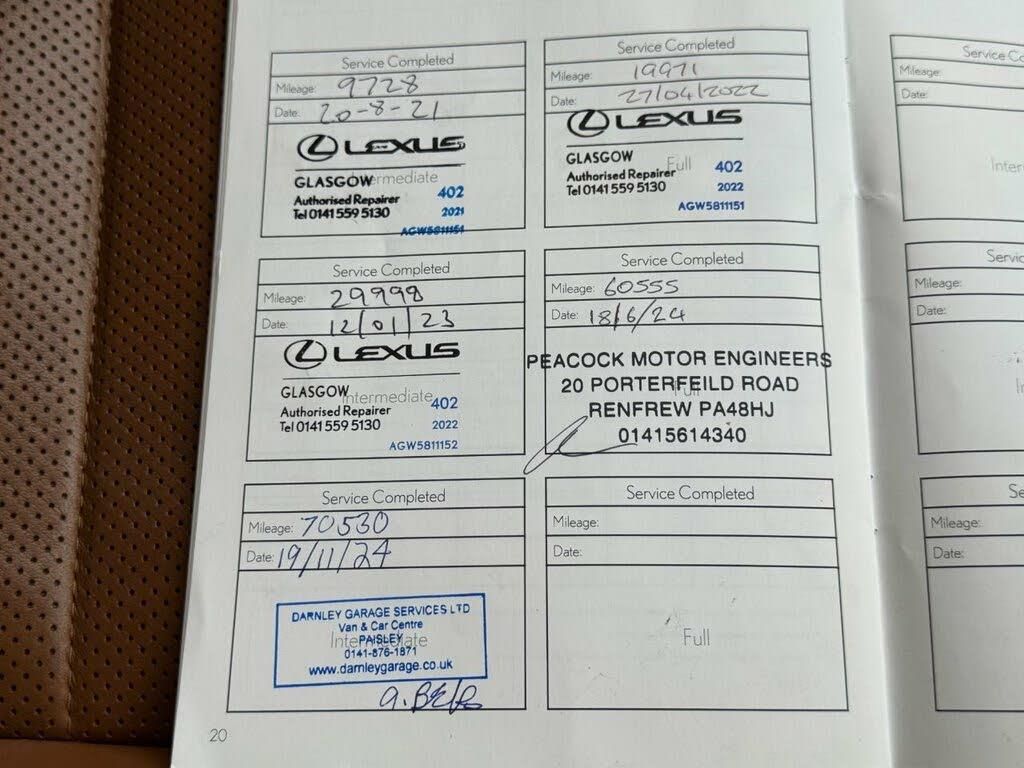 Service Completed
Mileage: 9728
Date: 20-8-21
LEXUS
GLASGOW
Intermediate
Authorised Repairer
402
Tel 0141 559 5130
2021
AGW5811151
Service Completed
Mileage: 19971
Date: 27/04/2022
LEXUS
GLASGOW
Full
Authorised Repairer
402
Tel 0141 559 5130
2022
AGW5811151
Service Completed
Mileage: 29998
Date: 12/01/23
LEXUS
GLASGOW
Intermediate
Authorised Repairer
402
Tel 0141 559 5130
2022
AGW5811152
Service Completed
Mileage: 60555
Date: 18/6/24
PEACOCK MOTOR ENGINEERS
20 PORTERFEILD ROAD
Full
RENFREW PA48HJ
01415614340
Service Completed
Mileage: 70530
Date: 19/11/24
DARNLEY GARAGE SERVICES LTD
Van & Car Centre
PAISLEY
Intermediate
0141-876-1871
www.darnleygarage.co.uk
Service Completed
Mileage:
Date:
Full
20
Mileage:
Date:
Mileage:
Date:
Mileage:
Date: